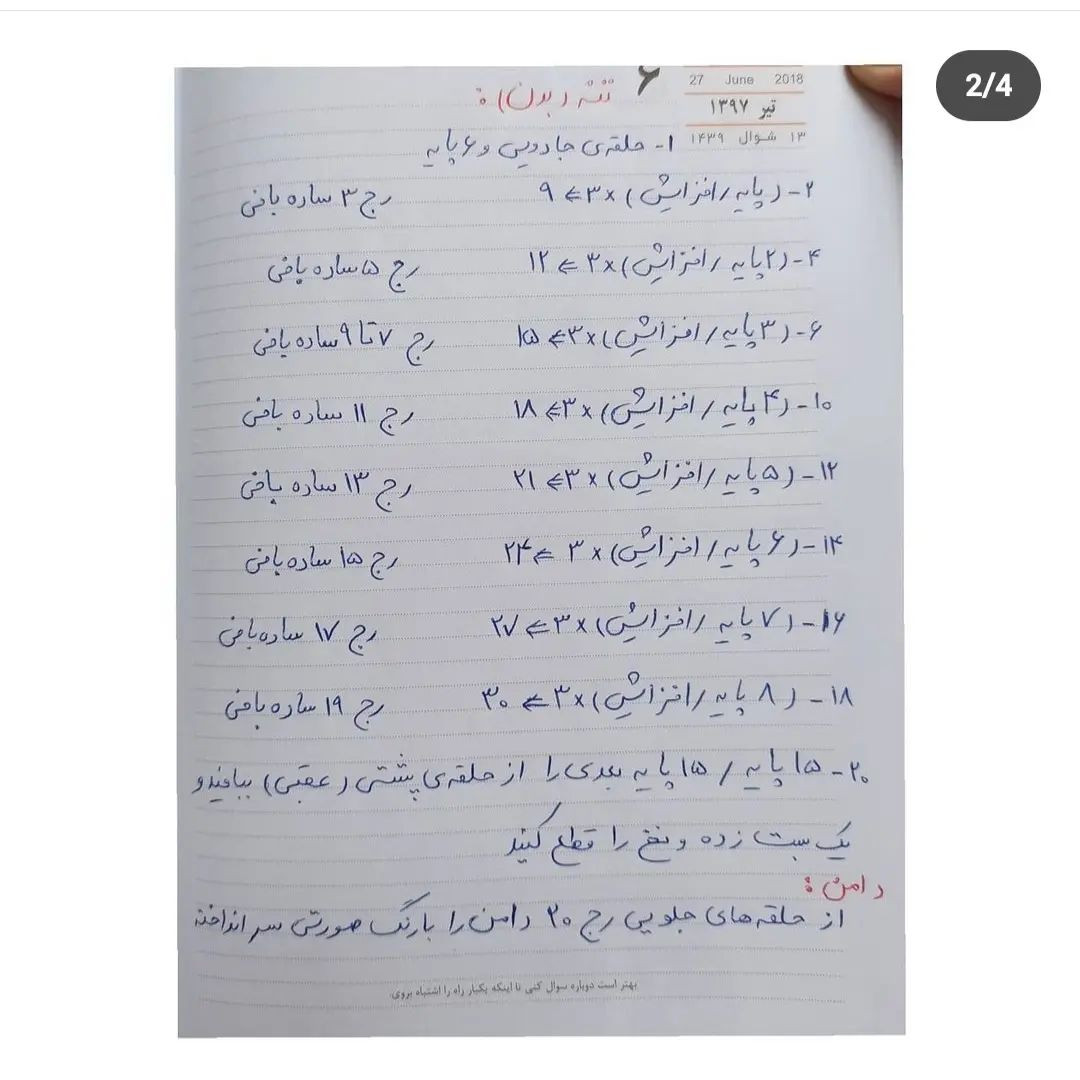 2/4
27 June 2018
تیر ۱۳۹۷
۱۳ شوال ۱۴۳۹
۶
تنه (بدن):
۱- حلقه‌ی جادویی و ۶ پایه
۲- (پایه / افزایش) ×۳ ⇐ ۹ رج ۳ ساده بافی
۴- (۲پایه / افزایش) ×۳ ⇐ ۱۲ رج ۵ ساده بافی
۶- (۳ پایه / افزایش) ×۳ ⇐ ۱۵ رج ۷ تا ۹ ساده بافی
۱۰- (۴ پایه / افزایش) ×۳ ⇐ ۱۸ رج ۱۱ ساده بافی
۱۲- (۵ پایه / افزایش) ×۳ ⇐ ۲۱ رج ۱۳ ساده بافی
۱۴- (۶ پایه / افزایش) × ۳ ⇐ ۲۴ رج ۱۵ ساده بافی
۱۶- (۷ پایه / افزایش) ×۳ ⇐ ۲۷ رج ۱۷ ساده بافی
۱۸- (۸ پایه / افزایش) ×۳ ⇐ ۳۰ رج ۱۹ ساده بافی
۲۰- ۱۵ پایه / ۱۵ پایه بعدی را از حلقه‌ی پشتی (عقبی) ببافید و
یک بست زده و نخ را قطع کنید
دامن:
از حلقه های جلویی رج ۲۰ دامن را با رنگ صورتی سر انداخته
بهتر است دوباره سوال کنی تا اینکه یکبار راه را اشتباه بروی.